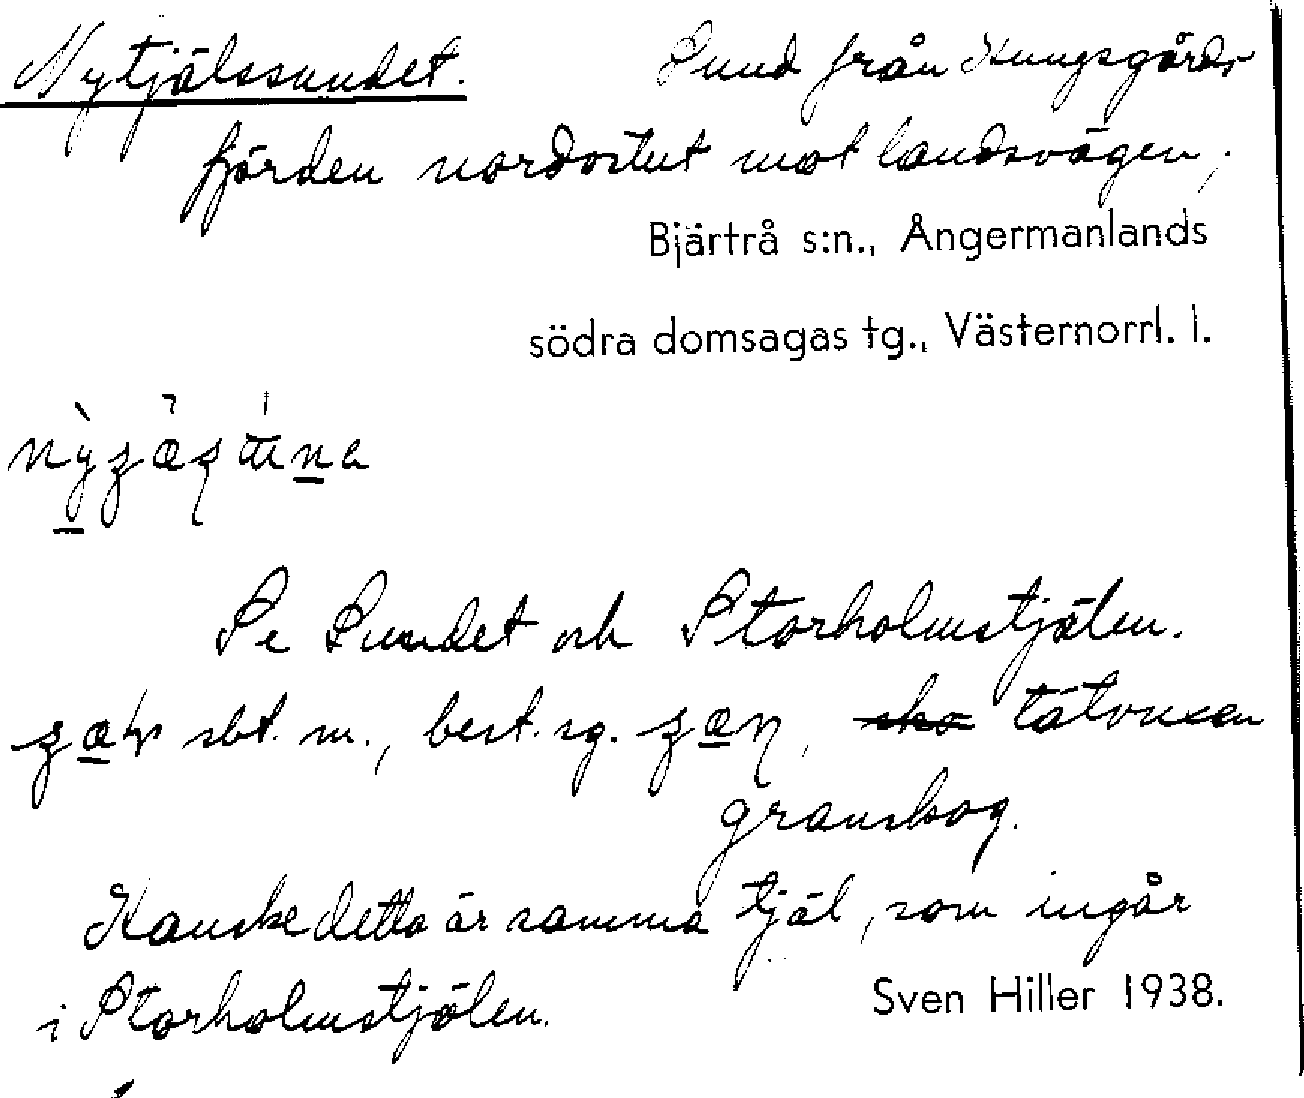 Nytjälssundet. Sund från Kungsgårds-
fjärden nordostut mot landsvägen,
Bjärtrå s:n., Ångermanlands
södra domsagas tg., Västernorrl. l.
Se Sundet och Storholmstjälen.
sbt. m., best. sg. tätvuxen
granskog.
Kanske detta är samma tjäl, som ingår
i Storholmstjälen.
Sven Hiller 1938.